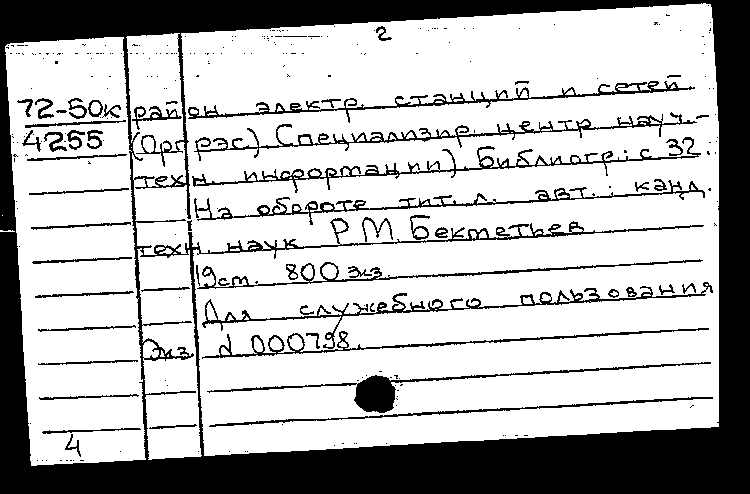 2
72-50к район. электр. станций и сетей
4255 (Оргрэс). Специализир. центр науч.-
техн. информации). Библиогр.: с. 32.
На обороте тит. л. авт.: канд.
техн. наук Р.М. Бектетьев
19см. 800 экз.
Для служебного пользования
Экз. № 000798.
4